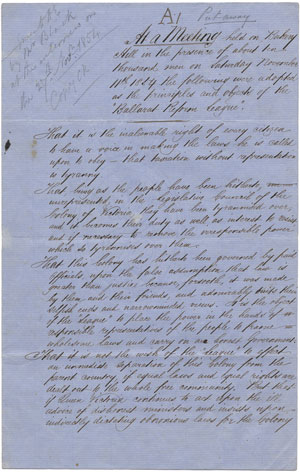 A1
Put away
At a Meeting held on Bakery
Hill in the presence of about ten
thousand, men on Saturday November
11th 1854 the following were adopted
as the principles and objects of the
"Ballarat Reform League".
That it is the inalienable right of every citizen
to have a voice in making the laws he is called
upon to obey – that taxation without representation
is tyranny
That being as the people have been hitherto,
unrepresented in the Legislative Council of the
Colony of Victoria they have been tyrannised over,
and it becomes their duty as well as interest to resist
and if necessary to remove the irresponsible power
which so tyrannises over them.
That this Colony has hitherto been governed by paid
officials, upon the false assumption that law is
greater than justice because, forsooth, it was made
by them and their friends, and admirably suits their
selfish ends and narrow minded views. It is the object
of the "League" to place the power in the hands of
responsible representatives of the people to frame
wholesome laws and carry on an honest Government.
That it is not the wish of the "League" to effect
an immediate separation of this Colony from the
parent country if equal laws and equal rights are
dealt out to the whole free community. But that
if Queen Victoria continues to act upon the ill
advice of dishonest ministers and insists upon
indirectly dictating obnoxious laws for the Colony